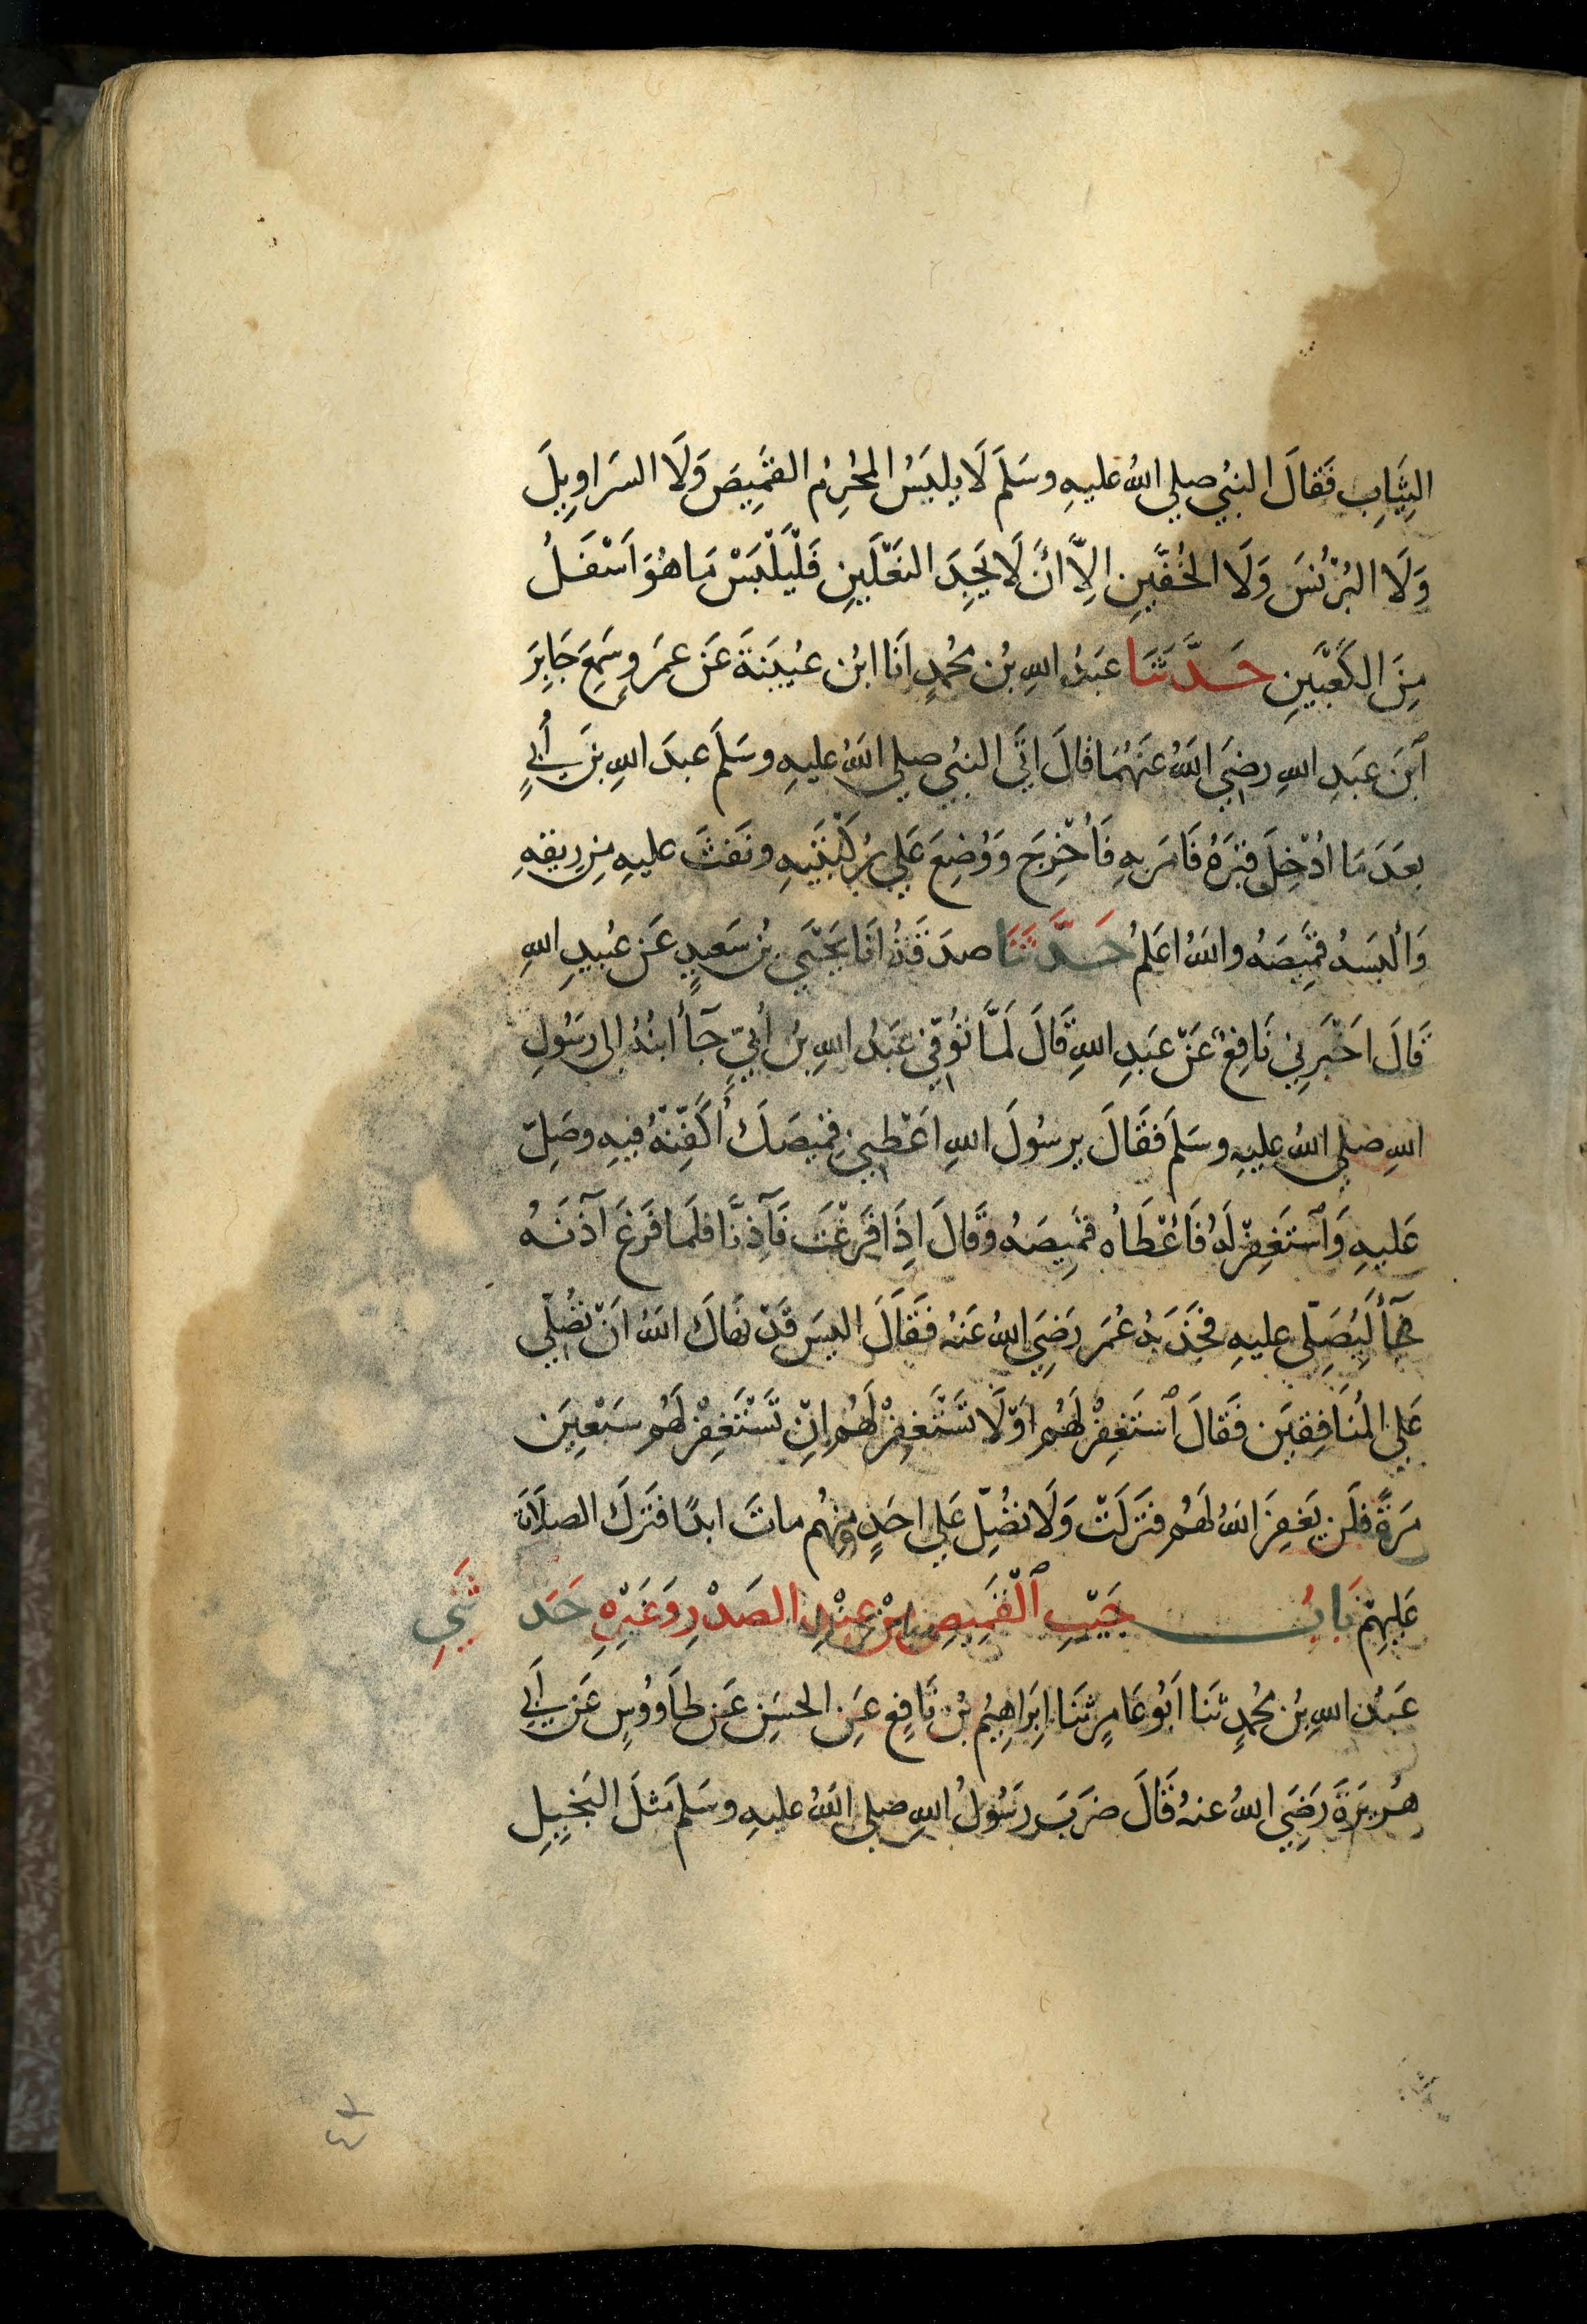 الثِّيَابِ فَقَالَ النبيُّ صلي اللهُ عليهِ وسَلَمَ لَا يلبَسُ المحْرِمُ القَمِيصَ وَلَا السَرَاوِيلَ
وَلَا البُرْنُسَ وَلَا الخُفَّينِ الِاَّ اَنْ لَا يَجِدَ النَعْلَينِ فَلْيَلْبَسْ مَا هُوَ اَسْفَلُ
مِنَ الكَعْبَينِ حَدَّثَنَا عَبدُ اللهِ بْنُ مُحمدٍ اَنَا ابْنُ عُيَينَةَ عَنْ عَمْرٍو سَمِعَ جَابِرَ
ٱبْنَ عَبدِ اللهِ رضِيَ اَللهُ عَنْهُمَا قَالَ اتَي النبيُّ صلي اللهُ عليهِ وسَلَمَ عبدَ اللهِ بنَ أُبَيٍ
بعَدَ مَا اُدْخِلَ قبْرَهُ فَامَرَ بهِ فَأُخْرِجَ وَوُضِعَ عَلي رُكْبَتَيهِ ونَفَثَ عليهِ مِن رِيقهِ
وَاَلبَسهُ قمِيصَهُ واللهُ اعَلمُ حَدَّثَنَا صدَقَةُ انَا يَحْيَي بْنُ سَعيدٍ عَن عُبَيدِ اللهِ
قَالَ اَخْبَرَنِي نَافِعٌ عَنْ عَبدِ اللهِ قَالَ لَمَّا تُوُفّيَ عَبدُ اللهِ بنُ أُبَيٍّ جَآءَ ابنُهُ الى رَسُولِ
اللهِ صلي اللهُ عليهِ وسَلمَ فَقَالَ يرسُولَ اللهِ اعْطِنِي قمِيصَكَ أُكَفِّنْهُ فيهِ وصَلِّ
عَليهِ وَٱستَغفِرْ لَهُ فَاعْطَاُه قمِيصَهُ وقَالَ اِذَا فَرَغْتَ فَآذِنَّا فلَمَا فَرَغَ آذَنَهُ
فجَآءَ لِيُصَلِّي عليهِ فجَذَبهُ عُمَر رَضِيَ اللهُ عَنهُ فقَالَ اليسَ قَدْ نهَاكَ اللهُ اَنْ تُصَلّي
عَلي المُنَافِقينَ فَقَالَ ٱستَغفِرْ لهُم اوْ لَا تَسْتَغفِرْ لهُم اِنْ تَسْتَغفِرْ لهُم سَبْعِينَ
مَرةً فلَن يَغفِرَ اللهُ لهُم فنَزلَتْ وَلَا تُصَلِّ عَلي احَدٍ منهُم ماتَ ابدًا فتَركَ الصلَاةَ
عَليهِمْ بَابُ جَيْبِ ٱلْقَمِيصِ مِنْ عِنْدِ الصَدْرِ وَغَيْرِهِ حَدثَنِي
عَبدُ اللهِ بنُ مُحمدٍ ثنَا اَبُو عَامِرٍ ثنَا اِبرَاهِيمُ بْنُ نَافِعٍ عَنِ الحسَنِ عَن طَاووُسٍ عَن اَبِي
هُريرَةَ رَضِيَ اللهُ عنهُ قَالَ ضرَبَ رَسُولُ اللهِ صلي اللهُ عليهِ وسَلمَ مَثلَ البَخِيلِ